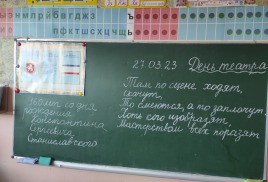 нмпрйбвгджз
пфктшсхцчщ
27.03.23 День театра
Там по сцене ходят,
скачут,
То смеются, а то заплачут,
Хоть кого изобразят,
Мастерством всех поразят
160 лет со дня
рождения
Константина
Сергеевича
Станиславского